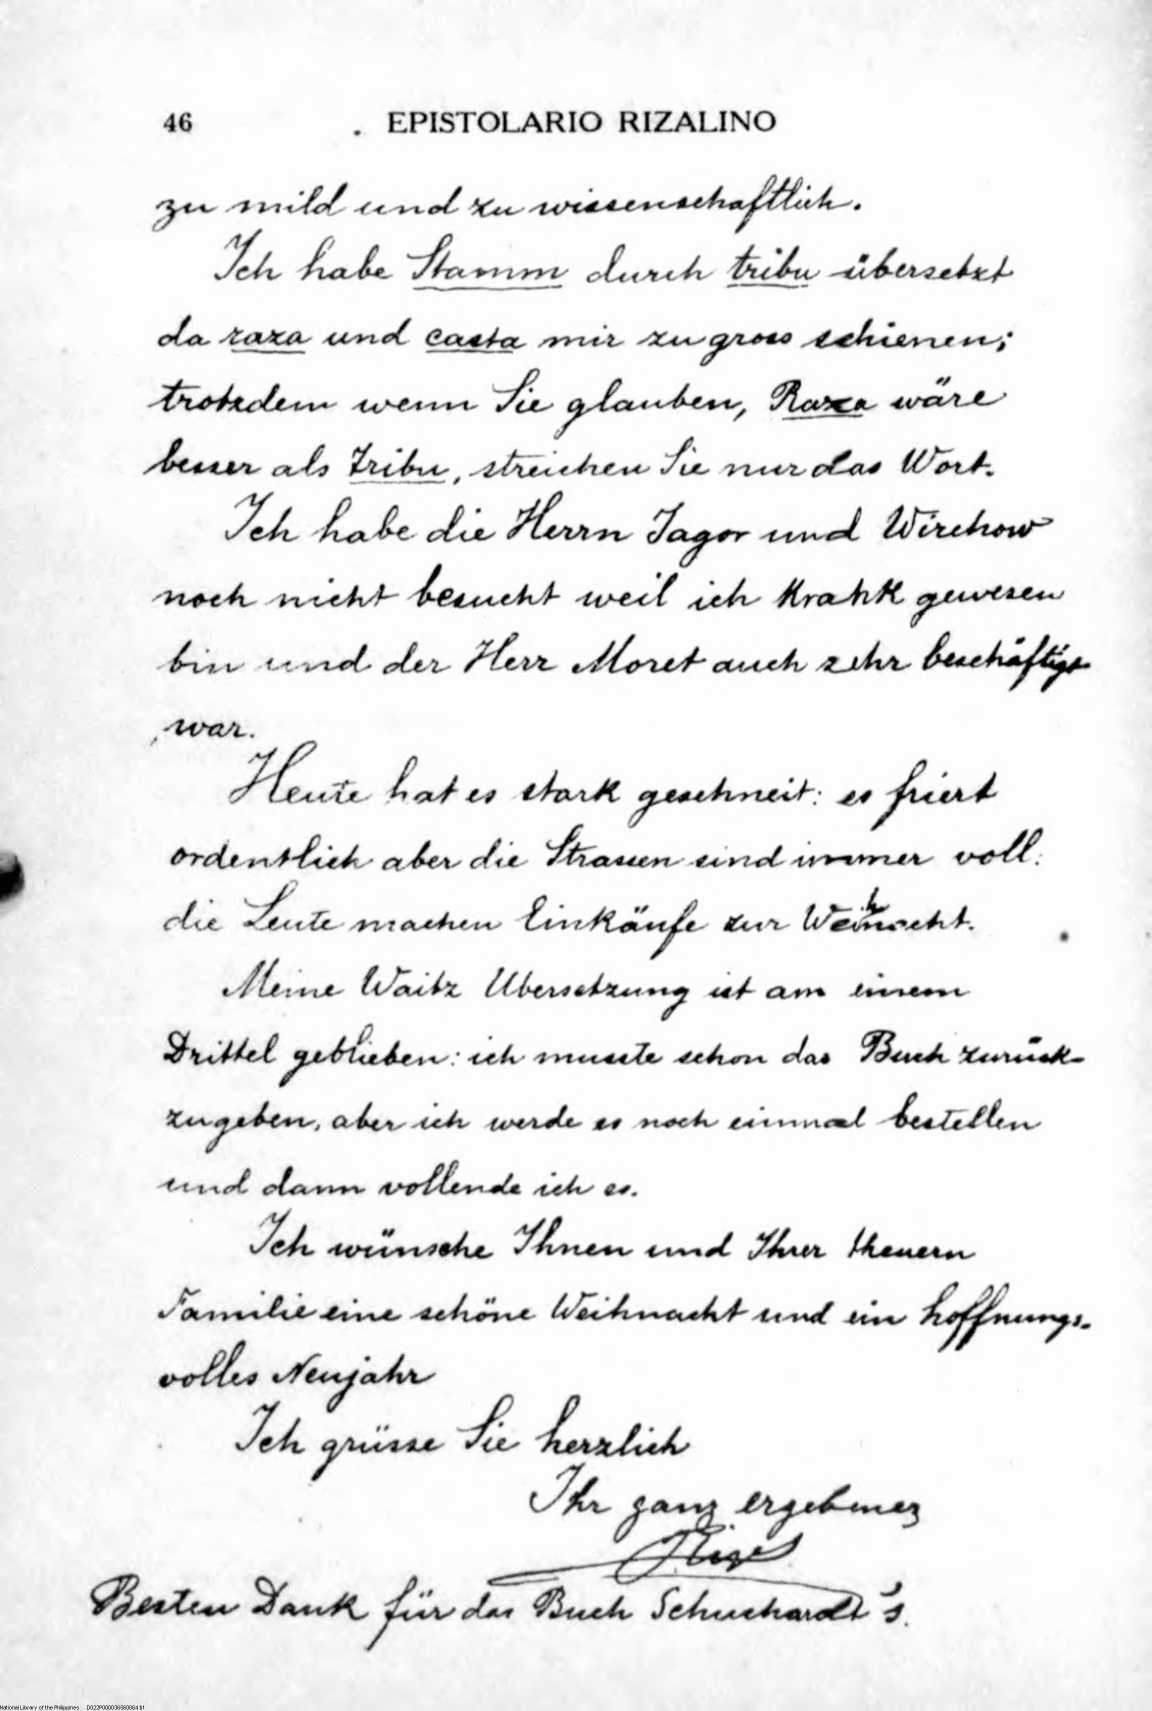 46 EPISTOLARIO RIZALINO
zu mild und zu wissenschaftlich.
Ich habe Stamm durch tribu übersetzt
da raza und casta mir zu gross schienen;
trotzdem wenn Sie glauben, Raza wäre
besser als tribu, streichen Sie nur das Wort.
Ich habe die Herrn Jagor und Wirchow
noch nicht besucht weil ich krank gewesen
bin und der Herr Moret auch sehr beschäftigt
war.
Heute hat es stark geschneit: es friert
ordentlich aber die Strassen sind immer voll:
die Leute machen Einkäufe zur Weihnacht.
Meine Waitz Ubersetzung ist am einem
Drittel geblieben: ich musste schon das Buch zurück-
zugeben, aber ich werde es noch einmal bestellen
und dann vollende ich es.
Ich wünsche Ihnen und Ihrer theuern
Familie eine schöne Weihnacht und ein hoffnungs-
volles Neujahr
Ich grüsse Sie herzlich
Ihr ganz ergebener
Rizal
Besten Dank für das Buch Schuchardt's.
National Library of the Philippines